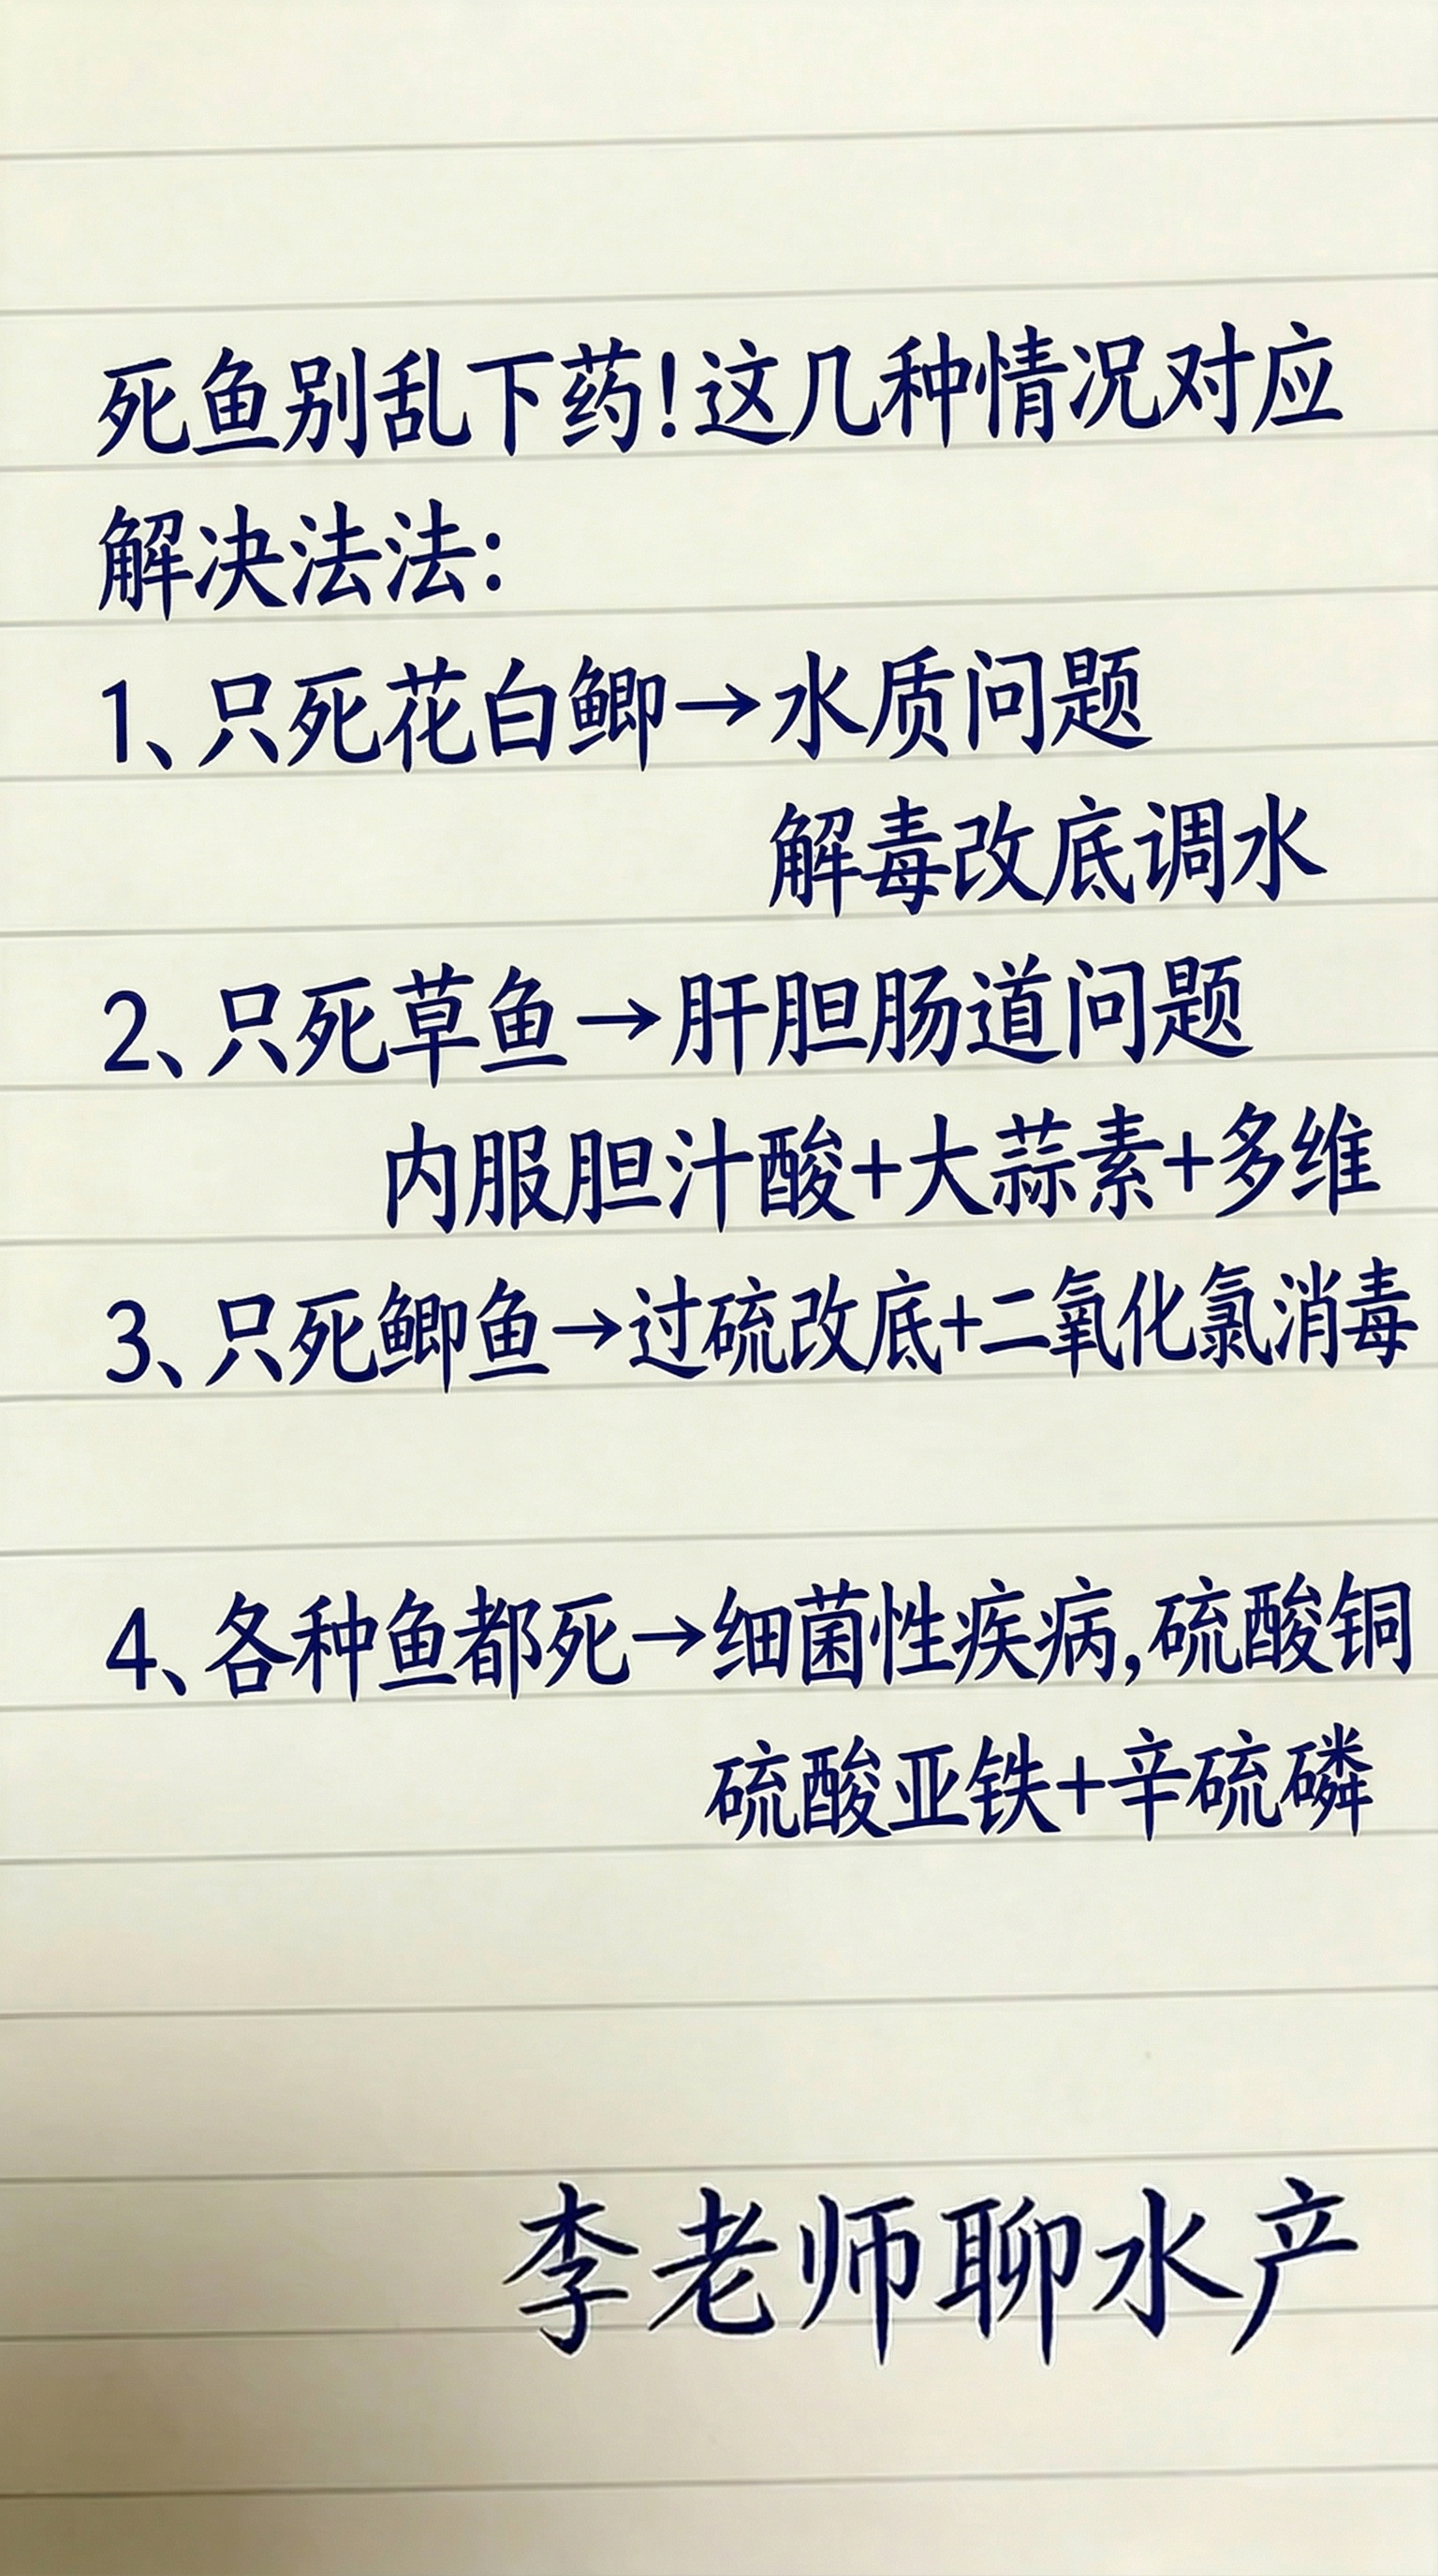 死鱼别乱下药!这几种情况对应
解决法法:
1、只死花白鲫→水质问题
解毒改底调水
2、只死草鱼→肝胆肠道问题
内服胆汁酸+大蒜素+多维
3、只死鲫鱼→过硫改底+二氧化氯消毒
4、各种鱼都死→细菌性疾病,硫酸铜
硫酸亚铁+辛硫磷
李老师聊水产